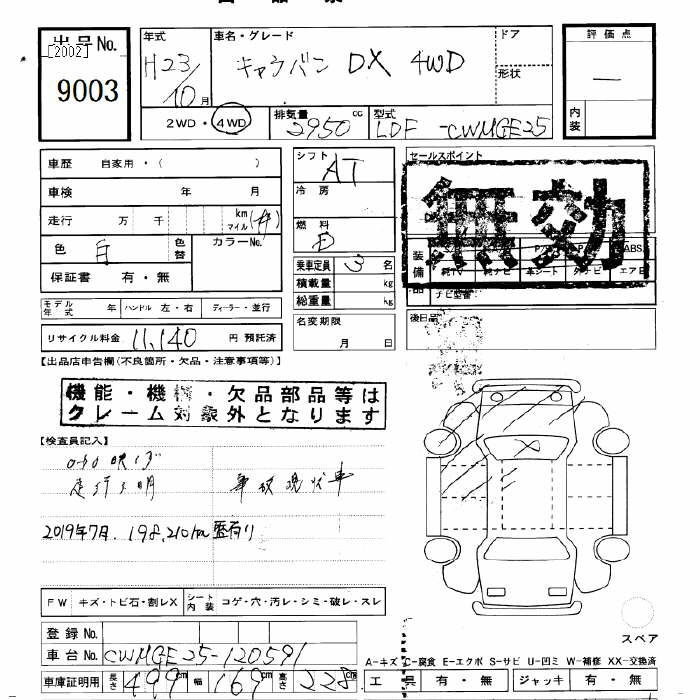 出品No.
[2002]
9003
年式
H23/10月
車名・グレード
キャラバン DX 4WD
ドア
形状
評価点
—
内装
2WD・4WD
排気量 2950 cc
型式 LDF -CWMGE25
車歴 自家用・( )
車検 年 月
走行 万 千 km マイル (#)
色 白
色替
カラーNo.
保証書 有・無
モデル年式 年
ハンドル 左・右
ディーラー・並行
リサイクル料金 11,140 円 預託済
シフト AT
冷房
燃料 D
乗車定員 3 名
積載量 kg
総重量 kg
名変期限
月 日
セールスポイント
無効
装備
ABS
純TV 純ナビ 革シート エアB
ナビ型番:
後日品
【出品店申告欄(不良箇所・欠品・注意事項等)】
機能・機構・欠品部品等は
クレーム対象外となります
【検査員記入】
走行不明
事故現状車
2019年7月 198,210km 歴有り
FW キズ・トビ石・割レX
シート内装 コゲ・穴・汚レ・シミ・破レ・スレ
登録No.
車台No. CWMGE25-120591
車庫証明用 長さ 499cm 幅 169cm 高さ 228cm
スペア
A-キズ C-腐食 E-エクボ S-サビ U-凹ミ W-補修 XX-交換済
工具 有・無 ジャッキ 有・無